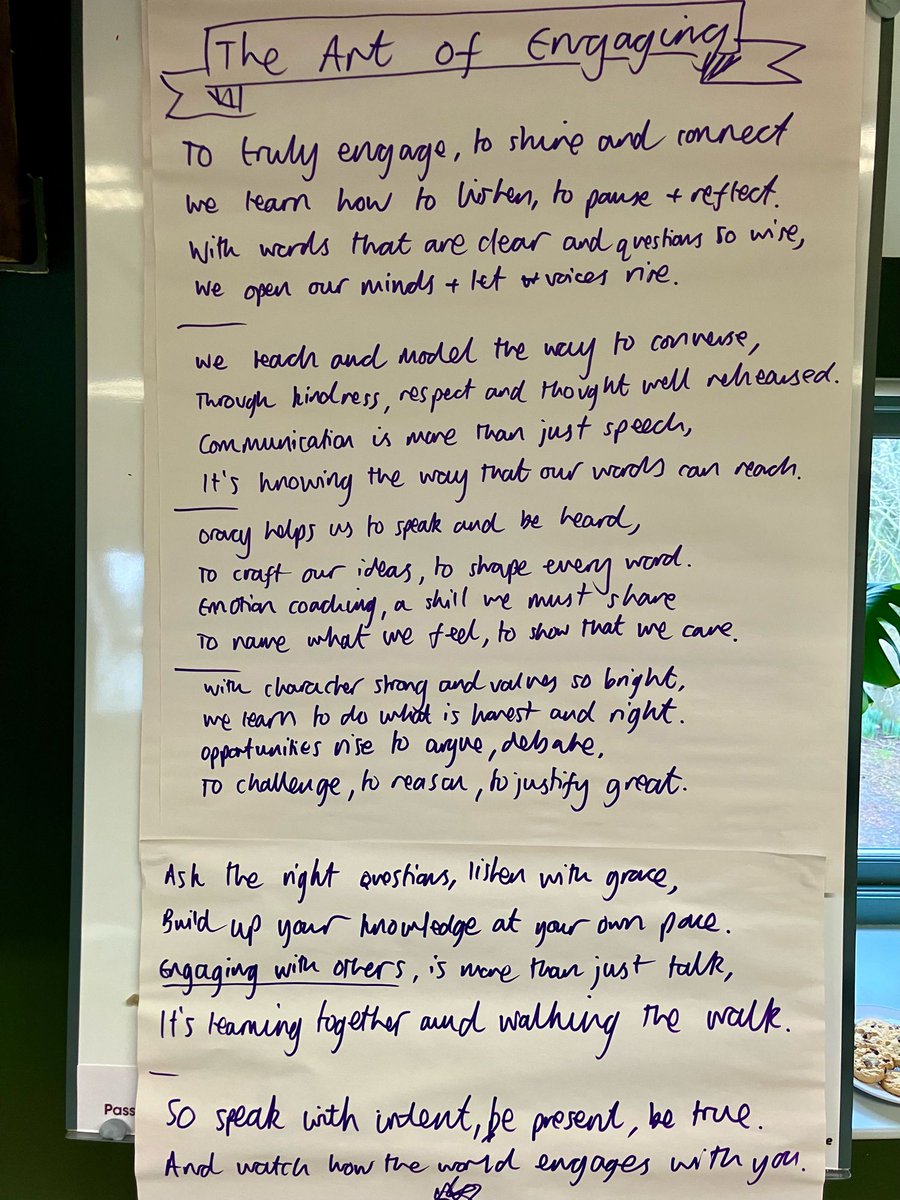 The Art of Engaging
To truly engage, to shine and connect
we learn how to listen, to pause + reflect.
With words that are clear and questions so wise,
We open our minds + let voices rise.
We teach and model the way to converse,
Through kindness, respect and thought well rehearsed.
Communication is more than just speech,
It's knowing the way that our words can reach.
Oracy helps us to speak and be heard,
To craft our ideas, to shape every word.
Emotion coaching, a skill we must share
To name what we feel, to show that we care.
With character strong and values so bright,
We learn to do what is honest and right.
opportunities rise to argue, debate,
To challenge, to reason, to justify great.
Ask the right questions, listen with grace,
Build up your knowledge at your own pace.
Engaging with others, is more than just talk,
It's learning together and walking the walk.
So speak with indent, be present, be true.
And watch how the world engages with you.
Pass
e